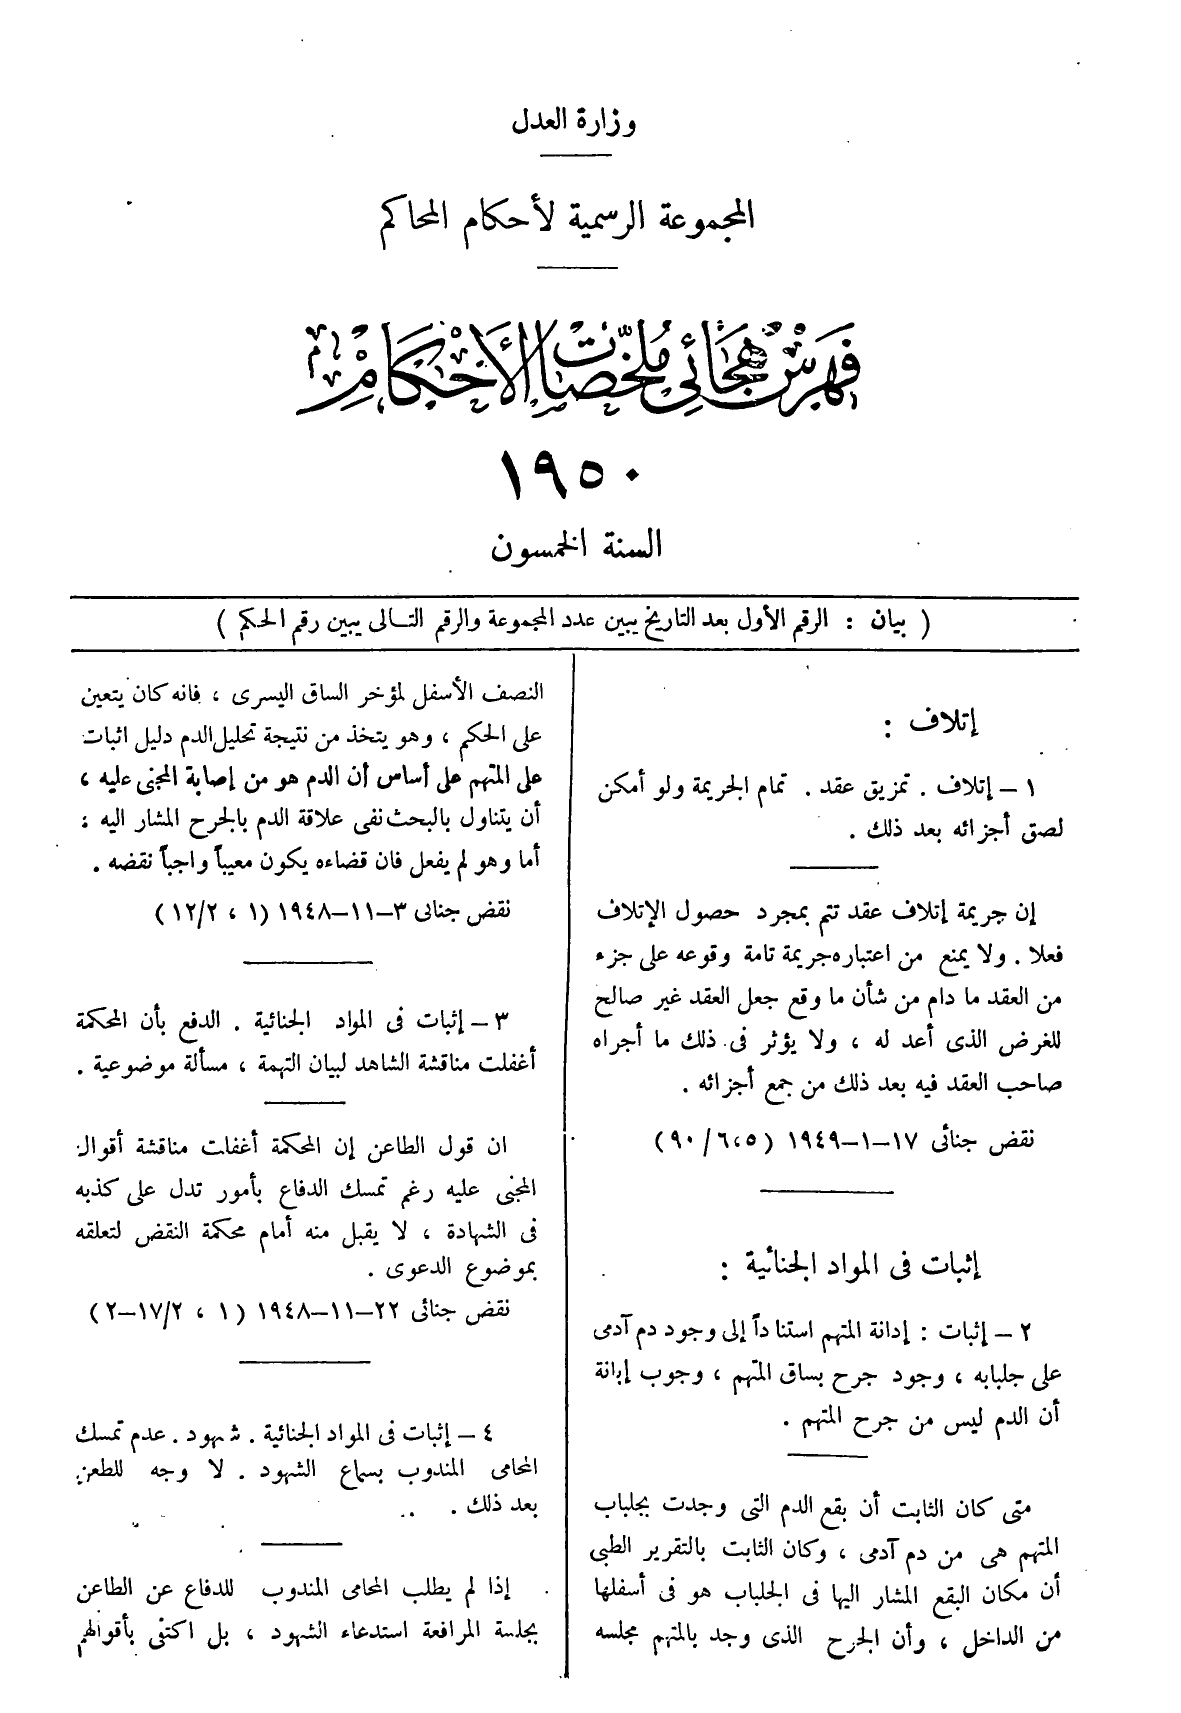 وزارة العدل
المجموعة الرسمية لأحكام المحاكم
فهرس هجائي ملخصات الأحكام
١٩٥٠
السنة الخمسون
( بيان : الرقم الأول بعد التاريخ يبين عدد المجموعة والرقم التالى يبين رقم الحكم )
إتلاف :
١ – إتلاف . تمزيق عقد . تمام الجريمة ولو أمكن
لصق أجزائه بعد ذلك .
إن جريمة إتلاف عقد تتم بمجرد حصول الإتلاف
فعلا . ولا يمنع من اعتباره جريمة تامة وقوعه على جزء
من العقد ما دام من شأن ما وقع جعل العقد غير صالح
للغرض الذى أعد له ، ولا يؤثر فى ذلك ما أجراه
صاحب العقد فيه بعد ذلك من جمع أجزائه .
نقض جنائى ١٧–١–١٩٤٩ (٦،٥/ ٩٠)
إثبات فى المواد الجنائية :
٢ – إثبات : إدانة المتهم استناداً إلى وجود دم آدمى
على جلبابه ، وجود جرح بساق المتهم ، وجوب إبانة
أن الدم ليس من جرح المتهم .
متى كان الثابت أن بقع الدم التى وجدت بجلباب
المتهم هى من دم آدمى ، وكان الثابت بالتقرير الطبى
أن مكان البقع المشار اليها فى الجلباب هو فى أسفلها
من الداخل ، وأن الجرح الذى وجد بالمتهم مجلسه
النصف الأسفل لمؤخر الساق اليسرى ، فانه كان يتعين
على الحكم ، وهو يتخذ من نتيجة تحليل الدم دليل اثبات
على المتهم على أساس أن الدم هو من إصابة المجنى عليه ،
أن يتناول بالبحث نفى علاقة الدم بالجرح المشار اليه :
أما وهو لم يفعل فان قضاءه يكون معيباً واجباً نقضه .
نقض جنائى ٣–١١–١٩٤٨ (١ ، ١٢/٢)
٣ – إثبات فى المواد الجنائية . الدفع بأن المحكمة
أغفلت مناقشة الشاهد لبيان التهمة ، مسألة موضوعية .
ان قول الطاعن إن المحكمة أغفلت مناقشة أقوال
المجنى عليه رغم تمسك الدفاع بأمور تدل على كذبه
فى الشهادة ، لا يقبل منه أمام محكمة النقض لتعلقه
بموضوع الدعوى .
نقض جنائى ٢٢–١١–١٩٤٨ (١ ، ١٧/٢–٢)
٤ – إثبات فى المواد الجنائية . شهود . عدم تمسك
المحامى المندوب بسماع الشهود . لا وجه للطعن
بعد ذلك .
إذا لم يطلب المحامى المندوب للدفاع عن الطاعن
بجلسة المرافعة استدعاء الشهود ، بل اكتفى بأقوالهم